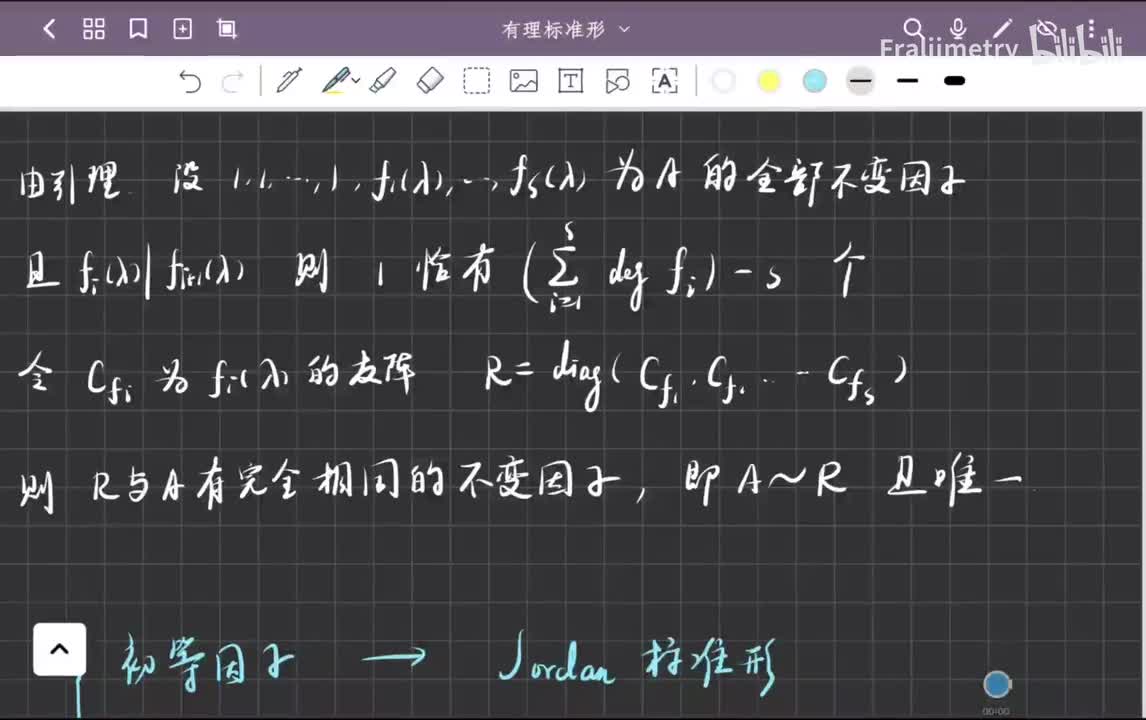 有理标准形
Fraliimetry bilibili
由引理 设 1,1,…,1,f₁(λ),…,fₛ(λ) 为 A 的全部不变因子
且 fᵢ(λ)|fᵢ₊₁(λ) 则 1 恰有 (∑ᵢ₌₁ˢ deg fᵢ) - s 个
令 C_{fᵢ} 为 fᵢ(λ) 的友阵 R = diag(C_{f₁}, C_{f₁} … C_{fₛ})
则 R与A有完全相同的不变因子, 即 A~R 且唯一
初等因子 → Jordan 标准形
00:00